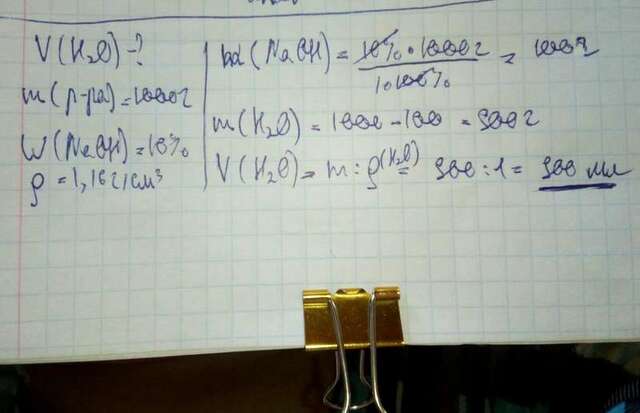 V(H₂O) - ?
m(р-ра) = 1000 г
W(NaOH) = 10%
ρ = 1,1 г/см³
m(NaOH) = 10% · 1000 г / 100% = 100 г
m(H₂O) = 1000 - 100 = 900 г
V(H₂O) = m : ρ(H₂O) = 900 : 1 = 900 мл